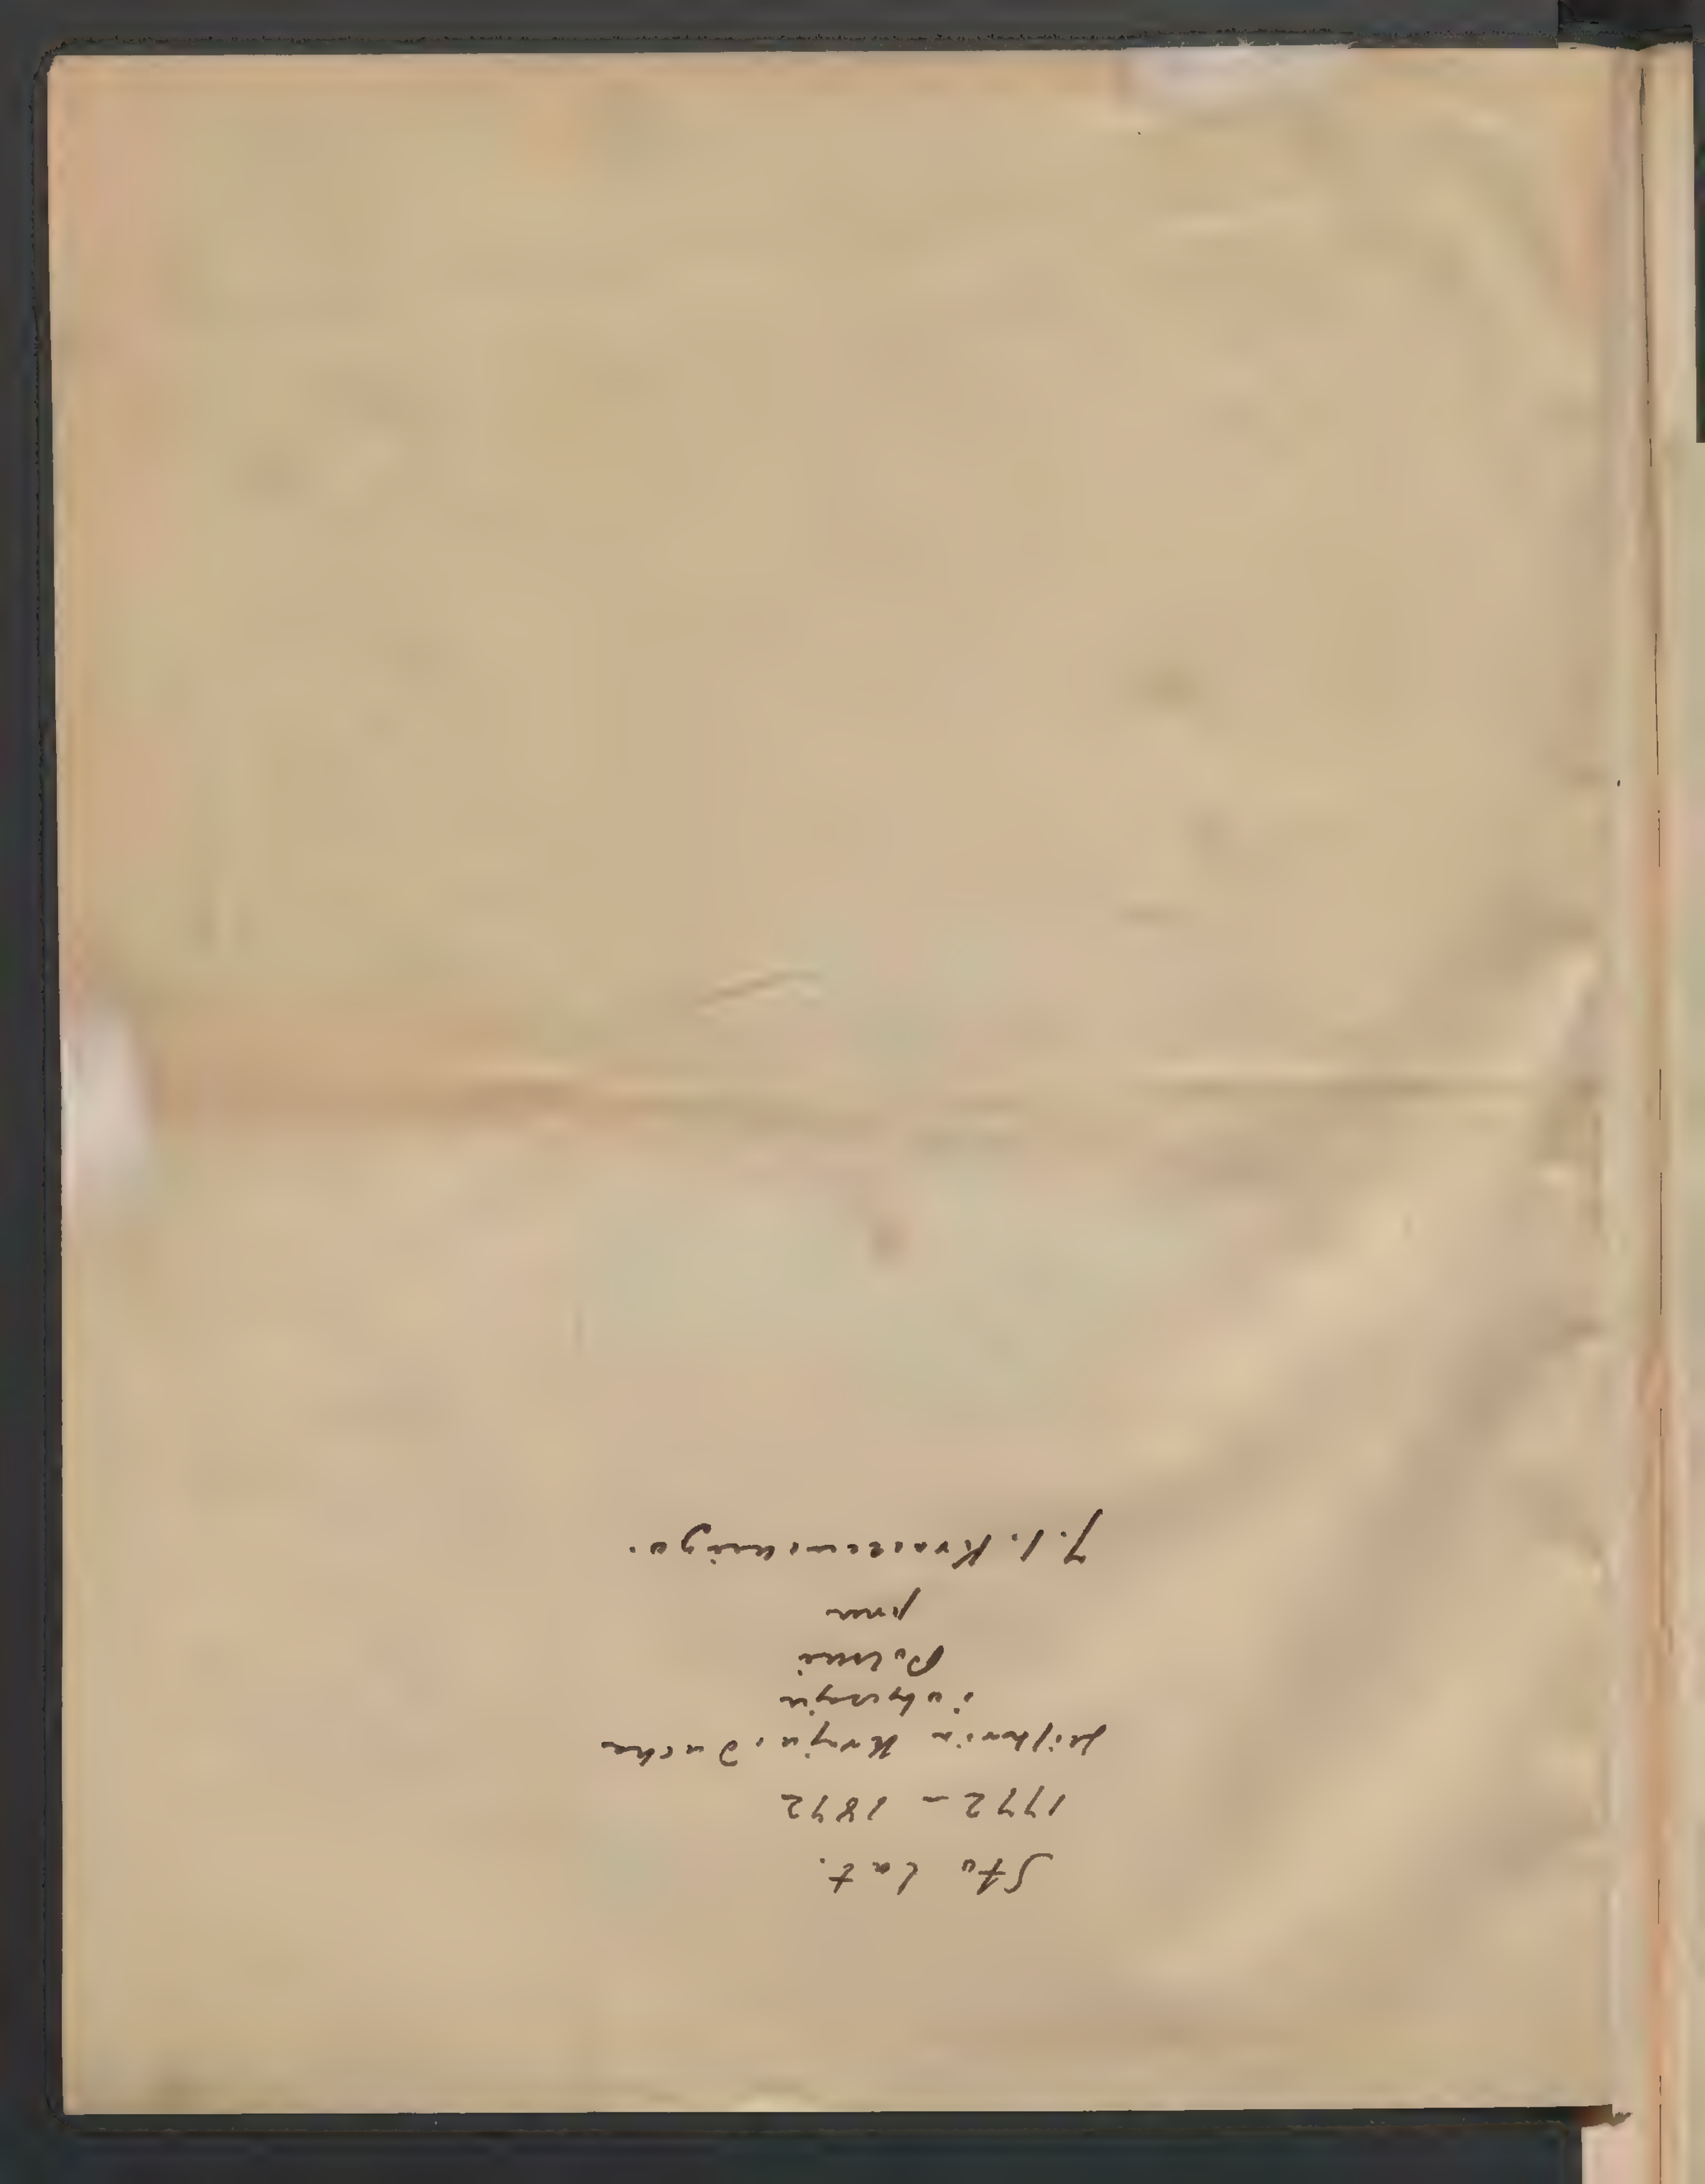 Sto lat.
1772 – 1872
Historia Kraju, Ducha
i obyczaju
Polski
prze
J. I. Kraszewskiego.